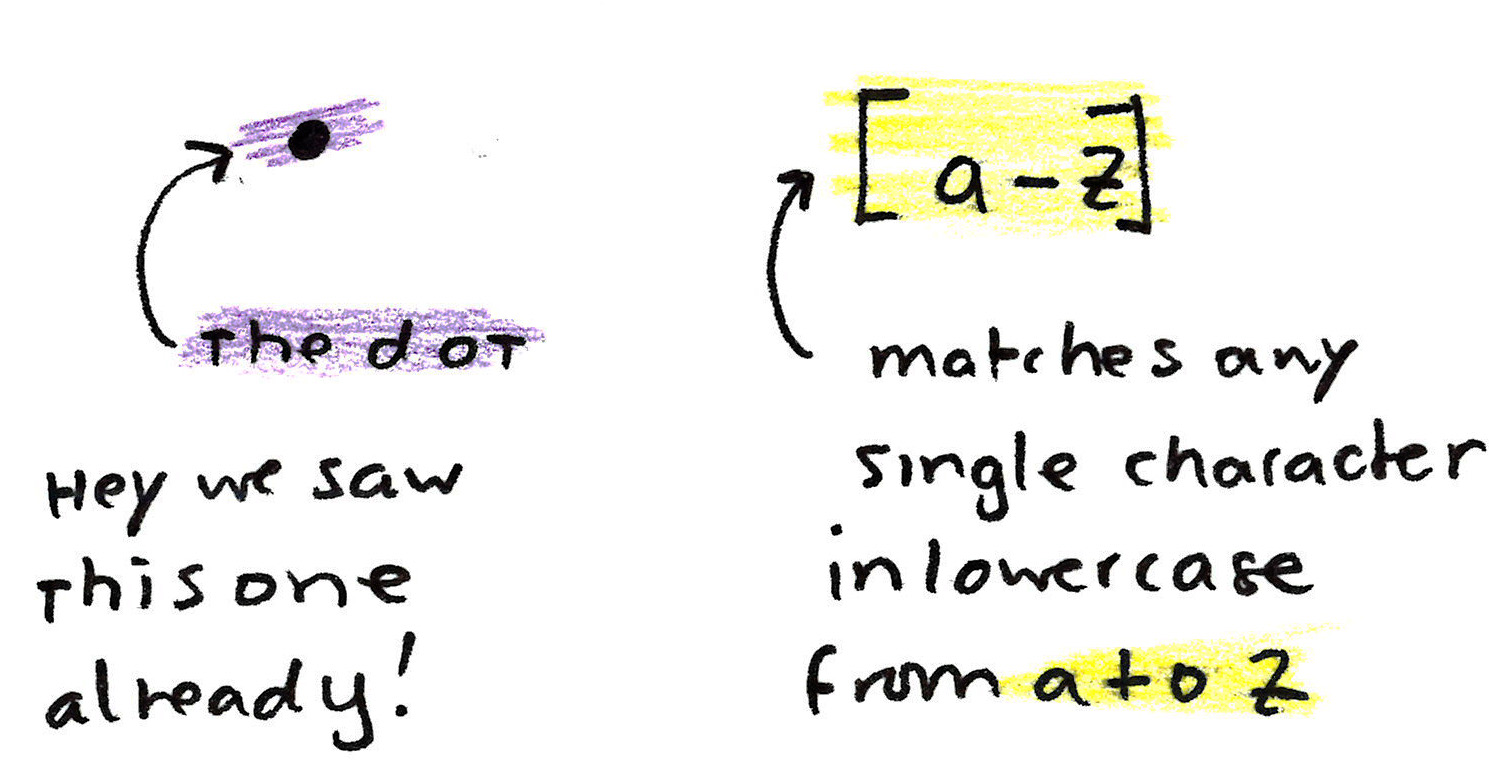 .
The dot
Hey we saw
this one
already!
[a-z]
matches any
single character
in lowercase
from a to z